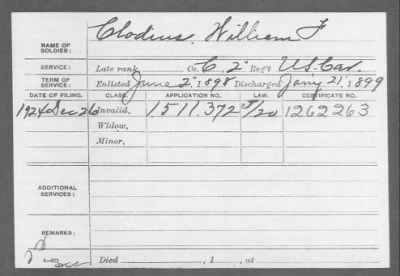 NAME OF SOLDIER: Clodius, William F
SERVICE: Late rank, Co. C, 2" Reg't U.S. Cav.
TERM OF SERVICE: Enlisted June 2", 1898 Discharged Jan'y 21", 1899
DATE OF FILING. CLASS. APPLICATION NO. LAW. CERTIFICATE NO.
1924 Dec 26 Invalid, 1511.372 1262263
Widow,
Minor,
ADDITIONAL SERVICES:
REMARKS:
Died , 1 , at